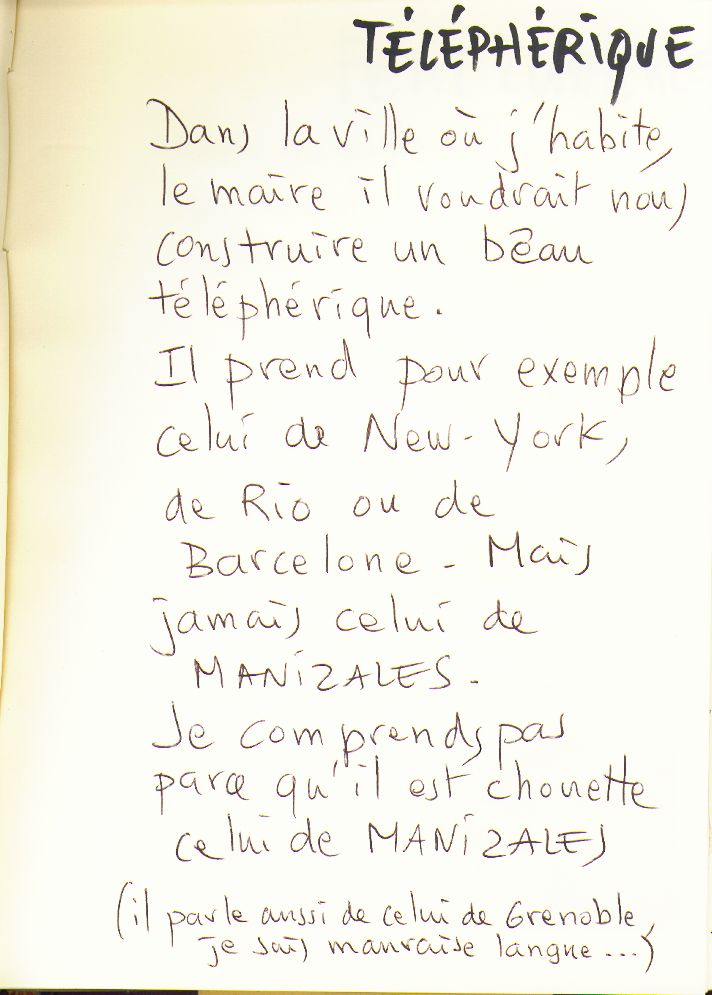 TÉLÉPHÉRIQUE
Dans la ville où j'habite,
le maire il voudrait nous
construire un beau
téléphérique.
Il prend pour exemple
celui de New-York,
de Rio ou de
Barcelone - Mais
jamais celui de
MANiZALES -
Je comprends pas
parce qu'il est chouette
celui de MANiZALES
(il parle aussi de celui de Grenoble,
je suis mauvaise langue...)